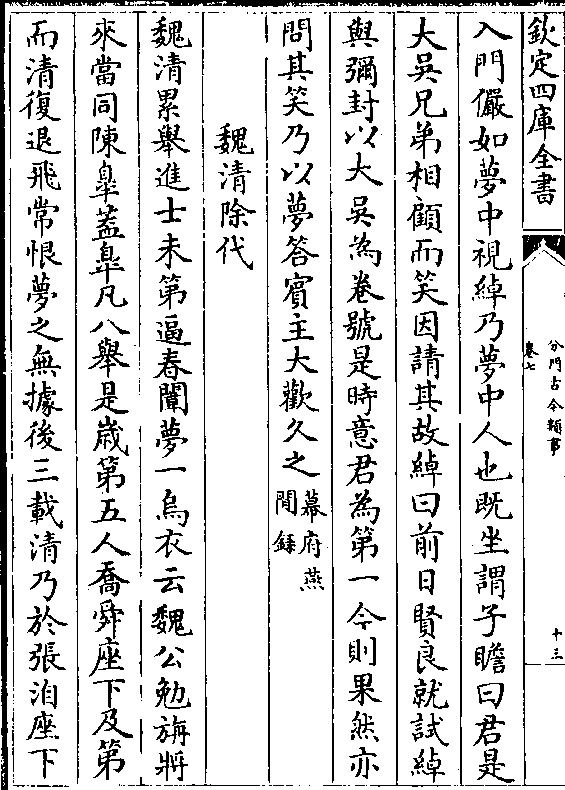 欽定四庫全書
分門古今類事
卷七
十三
入門儼如夢中視綽乃夢中人也既坐謂子瞻曰君是
大吳兄弟相顧而笑因請其故綽曰前日賢良就試綽
與彌封以大吳為卷號是時意君為第一今則果然亦
問其笑乃以夢答賓主大歡久之幕府燕
閒錄
魏清除代
魏清累舉進士未第逼春闈夢一烏衣云魏公勉旃將
來當同陳臯蓋臯凡八舉是歲第五人喬舜座下及第
而清復退飛常恨夢之無據後三載清乃於張洎座下